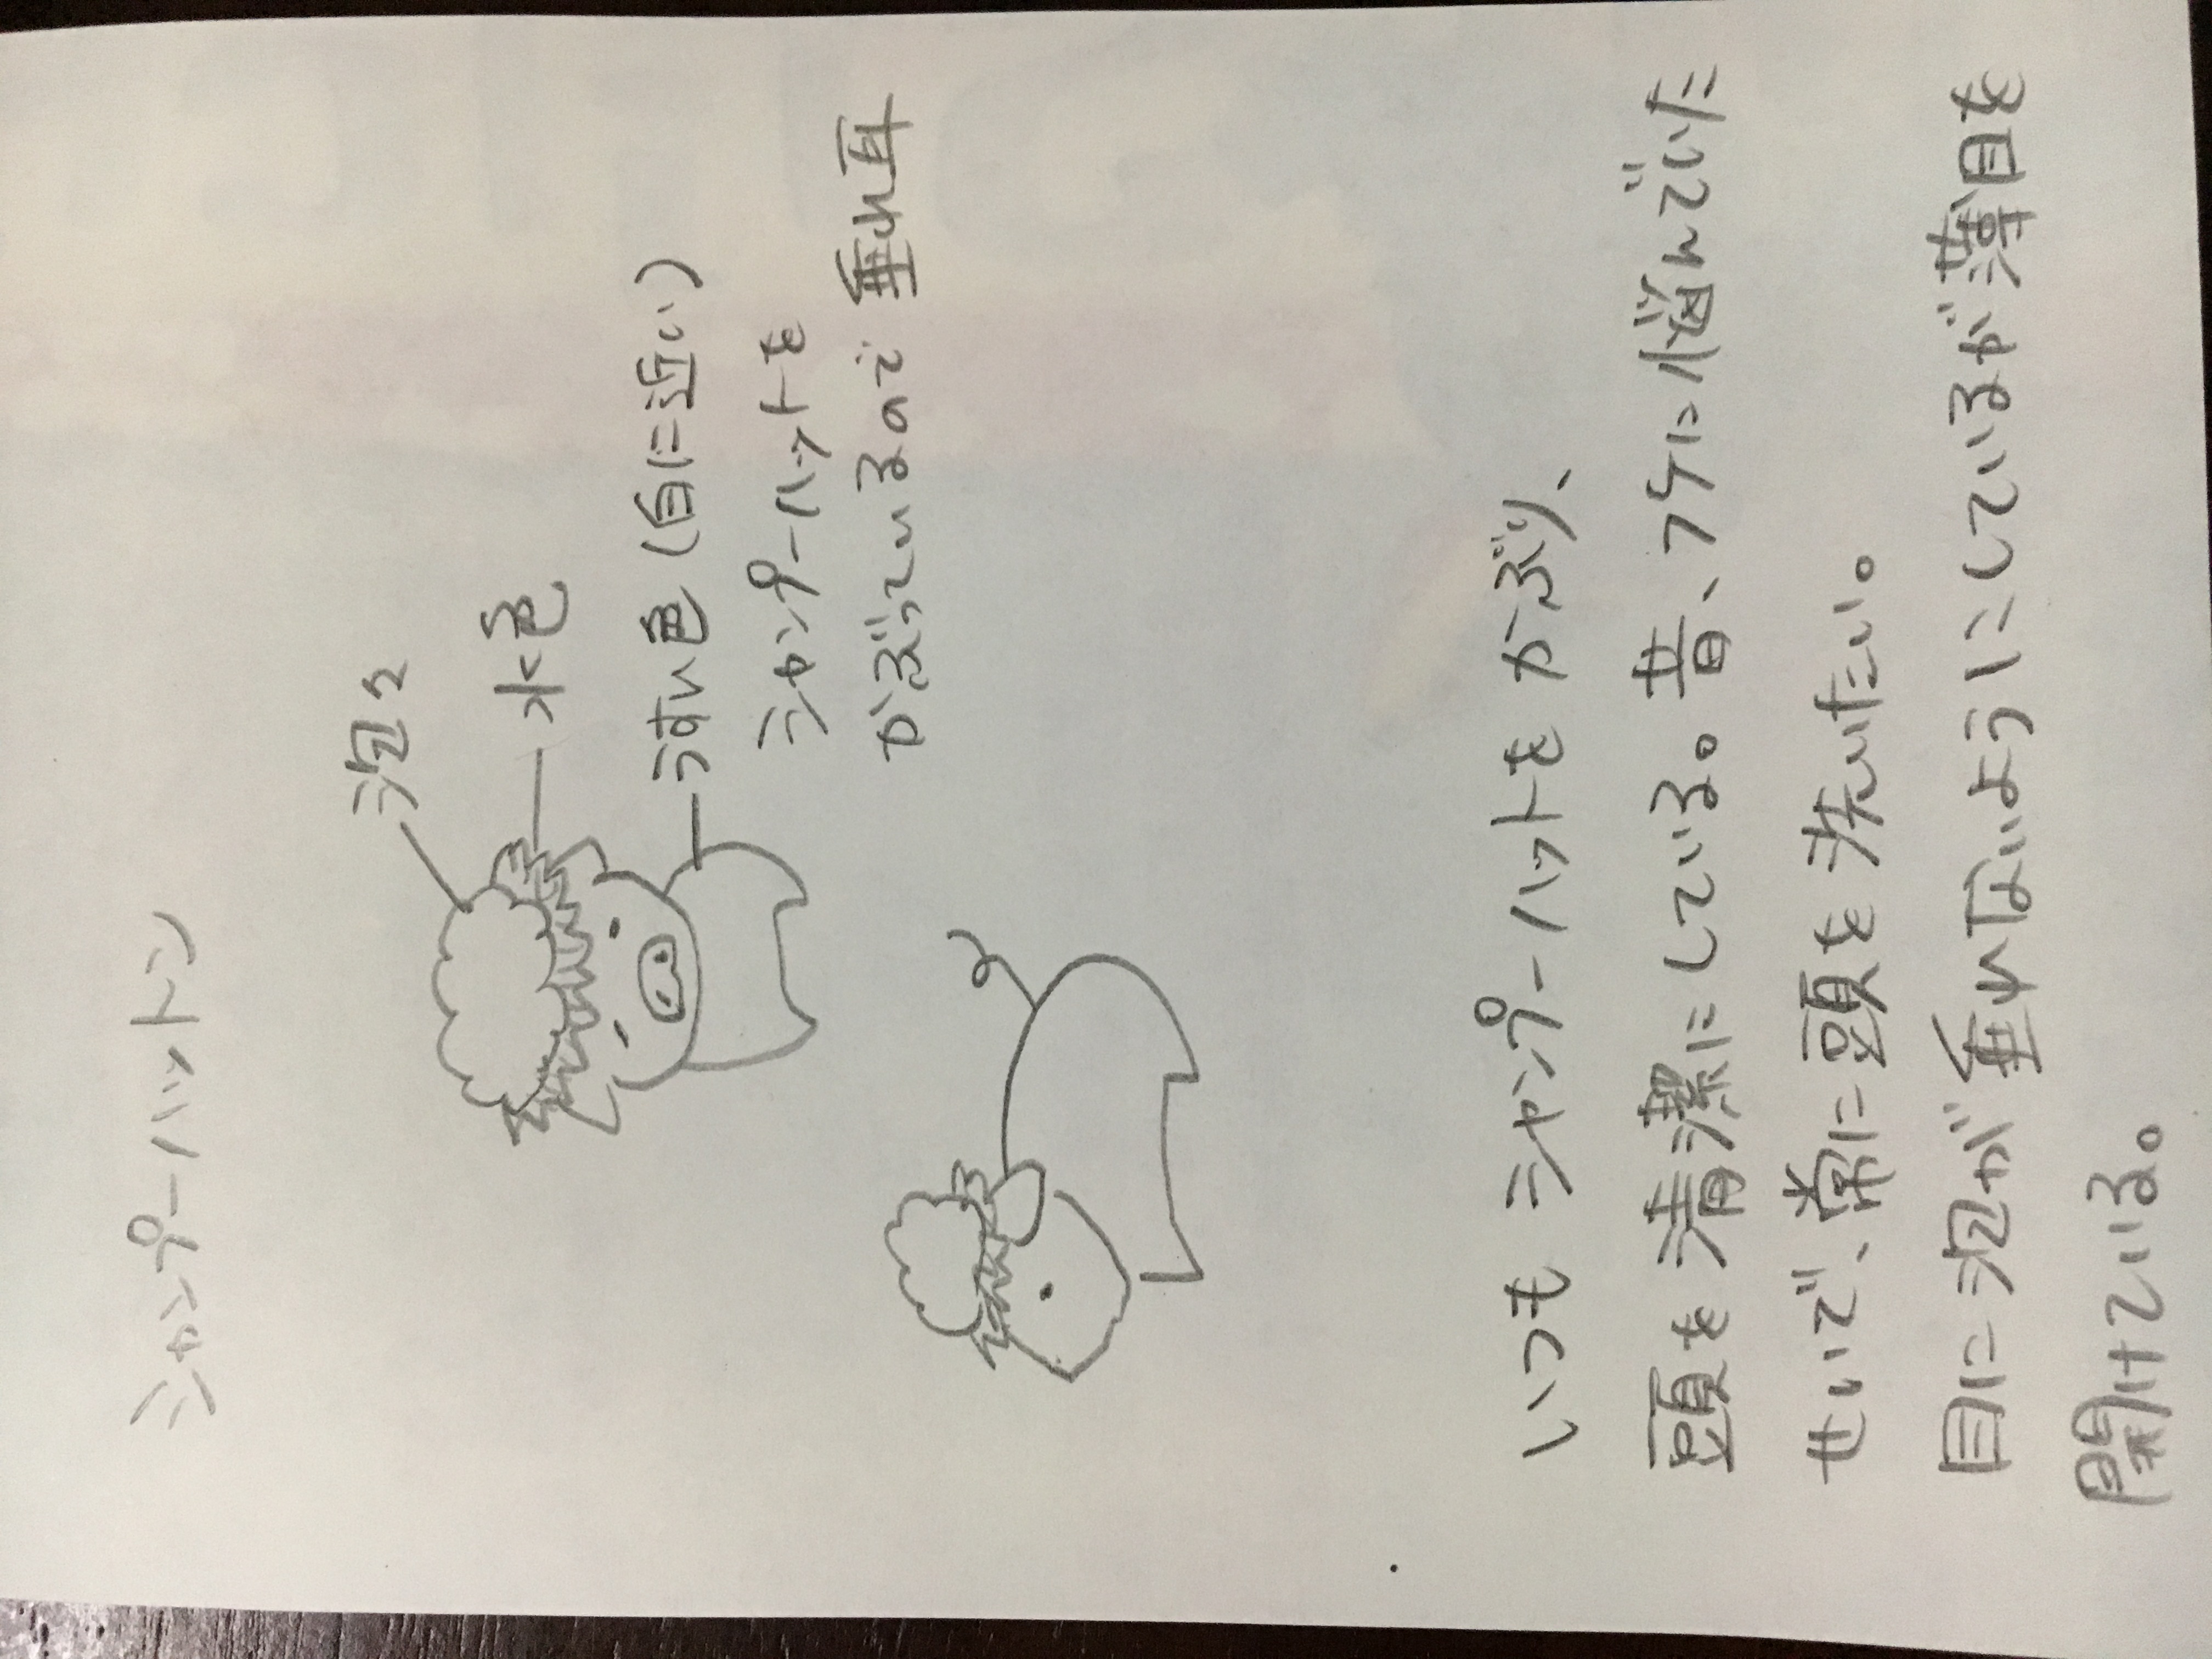 シャンプーハットン
泡々
水色
うすい色(白に近い)
シャンプーハットを
かぶっているので 垂れ耳
いつも シャンプーハットを かぶり、
頭を清潔にしている。昔、フケに悩んでいた
せいで、常に頭を洗いたい。
目に泡が垂れないようにしているが薄目を
開けている。